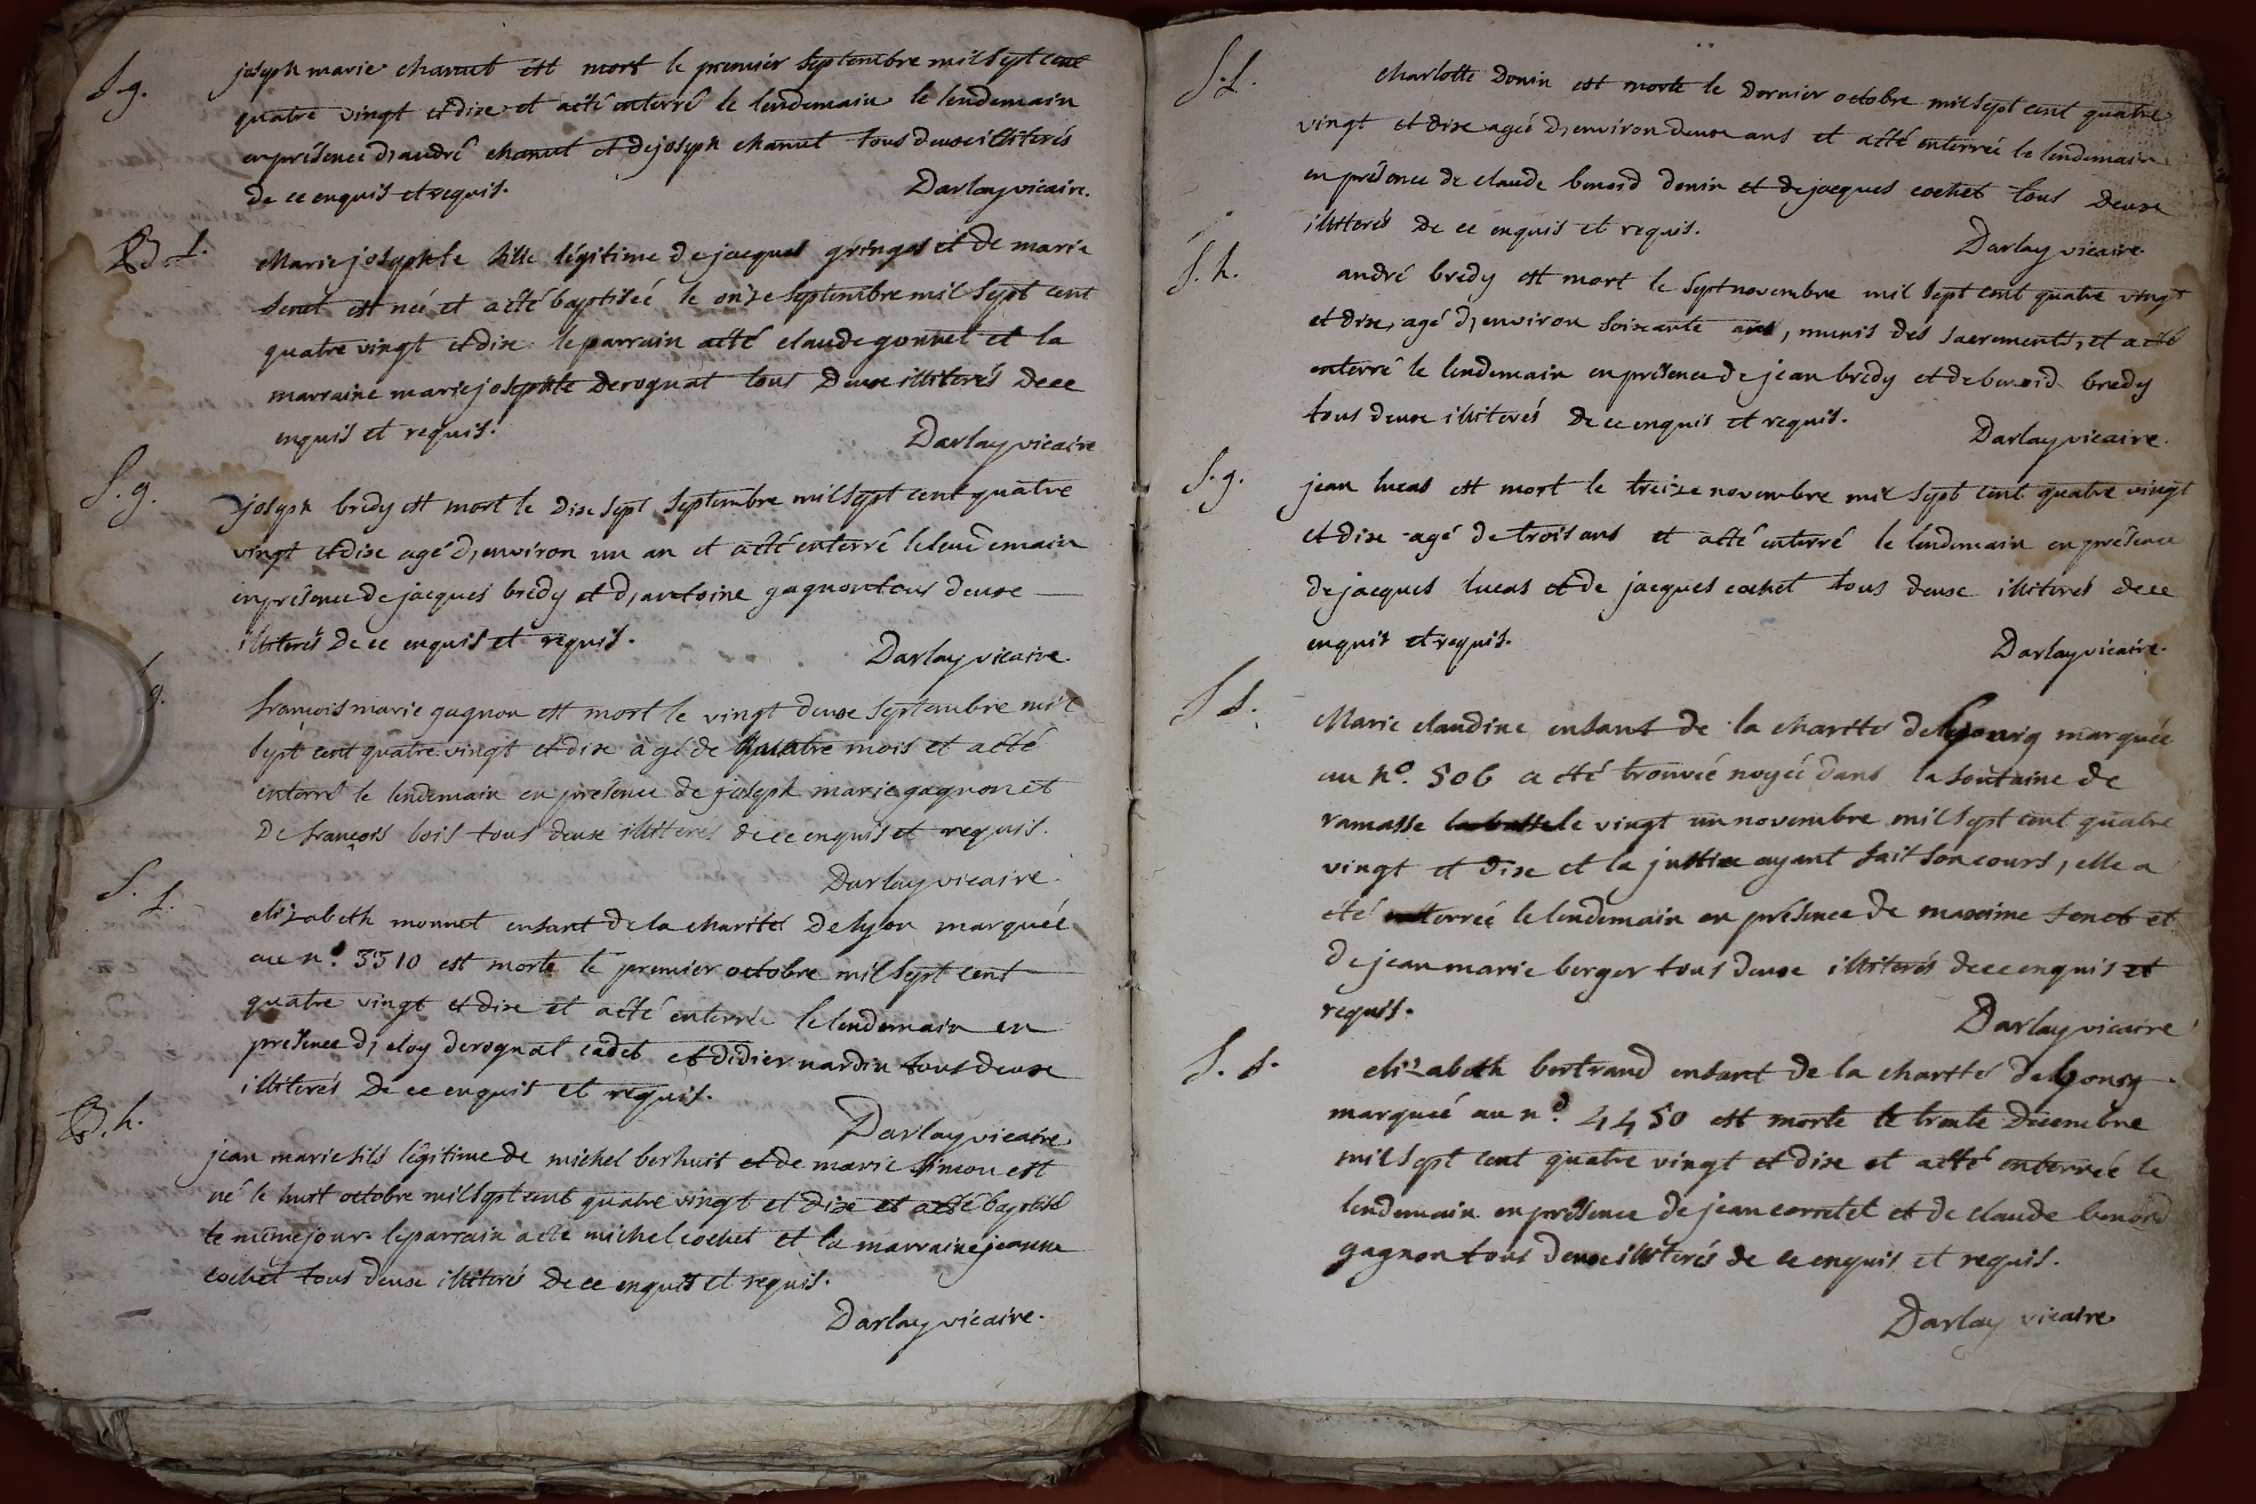 S. g.
joseph marie chanut est mort le premier septembre mil sept cent
quatre vingt et dix et a été enterré le lendemain le lendemain
en présence d,andré chanut et de joseph chanut tous deux illiterés
de ce enquis et requis.
Darlay vicaire.
B. f.
Marie josephte fille légitime de jacques gringos et de marie
fenet est née et a été baptisée le onze septembre mil sept cent
quatre vingt et dix le parrain a été claude gonnet et la
marraine marie josephte derognat tous deux illiterés de ce
enquis et requis.
Darlay vicaire
S. g.
joseph bredy est mort le dix sept septembre mil sept cent quatre
vingt et dix agé d,environ un an et a été enterré le lendemain
en présence de jacques bredy et d,antoine gagnon tous deux
illiterés de ce enquis et requis.
Darlay vicaire.
g.
françois marie gagnon est mort le vingt deux septembre mil
sept cent quatre vingt et dix agé de quatre mois et a été
enterré le lendemain en présence de joseph marie gagnon et
de françois bois tous deux illiterés de ce enquis et requis.
Darlay vicaire.
S. f.
elizabeth monnet enfant de la charité de lyon marquée
au n.° 3310 est morte le premier octobre mil sept cent
quatre vingt et dix et a été enterrée le lendemain en
présence d, eloy derognat cadet et didier nardin tous deux
illiterés de ce enquis et requis.
Darlay vicaire.
B. h.
jean marie fils légitime de michel berhuit et de marie simon est
né le huit octobre mil sept cent quatre vingt et dix et a été baptisé
le même jour. le parrain a été michel cochet et la marraine jeanne
cochet tous deux illiterés de ce enquis et requis.
Darlay vicaire.
S. f.
charlotte donin est morte le dernier octobre mil sept cent quatre
vingt et dix agée d,environ deux ans et a été enterrée le lendemain
en présence de claude benoid donin et de jacques cochet tous deux
illiterés de ce enquis et requis.
Darlay vicaire.
S. h.
andré bredy est mort le sept novembre mil sept cent quatre vingt
et dix, agé d,environ soixante ans, munis des sacrements, et a été
enterré le lendemain en présence de jean bredy et de benoid bredy
tous deux illiterés de ce enquis et requis.
Darlay vicaire.
S. g.
jean lucas est mort le treize novembre mil sept cent quatre vingt
et dix agé de trois ans et a été enterré le lendemain en présence
de jacques lucas et de jacques cochet tous deux illiterés de ce
enquis et requis.
Darlay vicaire.
S f.
Marie claudine enfant de la charité de bourg marquée
au n°. 506 a été trouvée noyée dans la fontaine de
ramasse le vingt un novembre mil sept cent quatre
vingt et dix et la justice ayant fait son cours, elle a
été enterrée le lendemain en présence de maxime fenet et
de jean marie berger tous deux illiterés de ce enquis et
requis.
Darlay vicaire
S. f.
elizabeth bertrand enfant de la charité de bourg
marquée au n.° 4450 est morte le trente décembre
mil sept cent quatre vingt et dix et a été enterrée le
lendemain en présence de jean corretet et de claude benoid
gagnon tous deux illiterés de ce enquis et requis.
Darlay vicaire